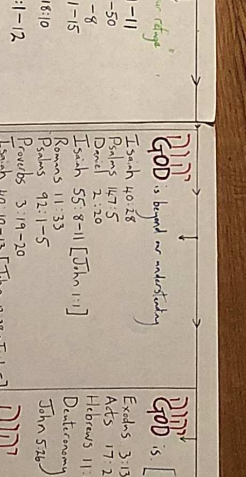 our refuge"
1-11
-50
-8
1-15
18:10
:1-12
יהוה
GOD is beyond our understanding
Isaiah 40:28
Psalms 147:5
Daniel 2:20
Isaiah 55:8-11 [John 1:1]
Romans 11:33
Psalms 92:1-5
Proverbs 3:19-20
Isaiah 40:
יהוה
GOD is [
Exodus 3:13
Acts 17:2
Hebrews 11:
Deuteronomy
John 5:26